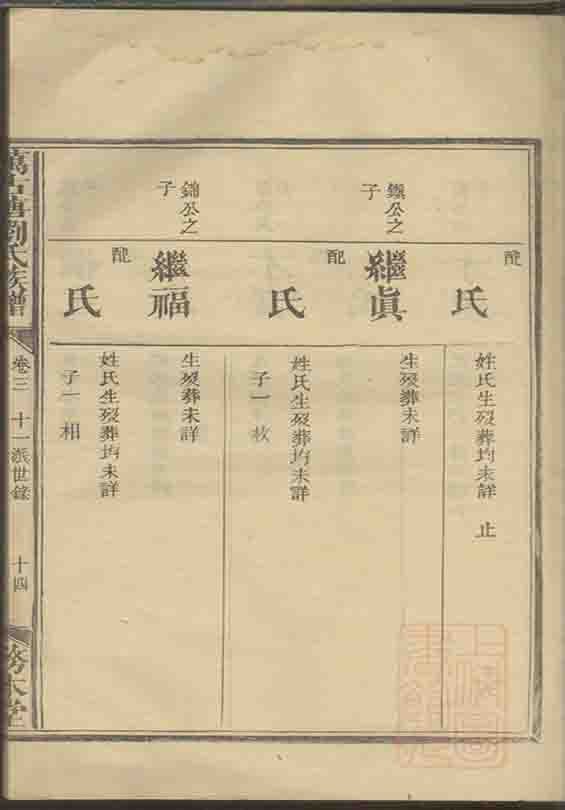 配
氏
姓氏生殁葬均未詳 止
鎮公之
子
繼眞
生殁葬未詳
配
氏
姓氏生殁葬均未詳
子一枚
錦公之
子
繼福
生殁葬未詳
配
氏
姓氏生殁葬均未詳
子一相
劉氏族譜
卷三 十一派世錄
十四
務本堂
上海圖
書館藏